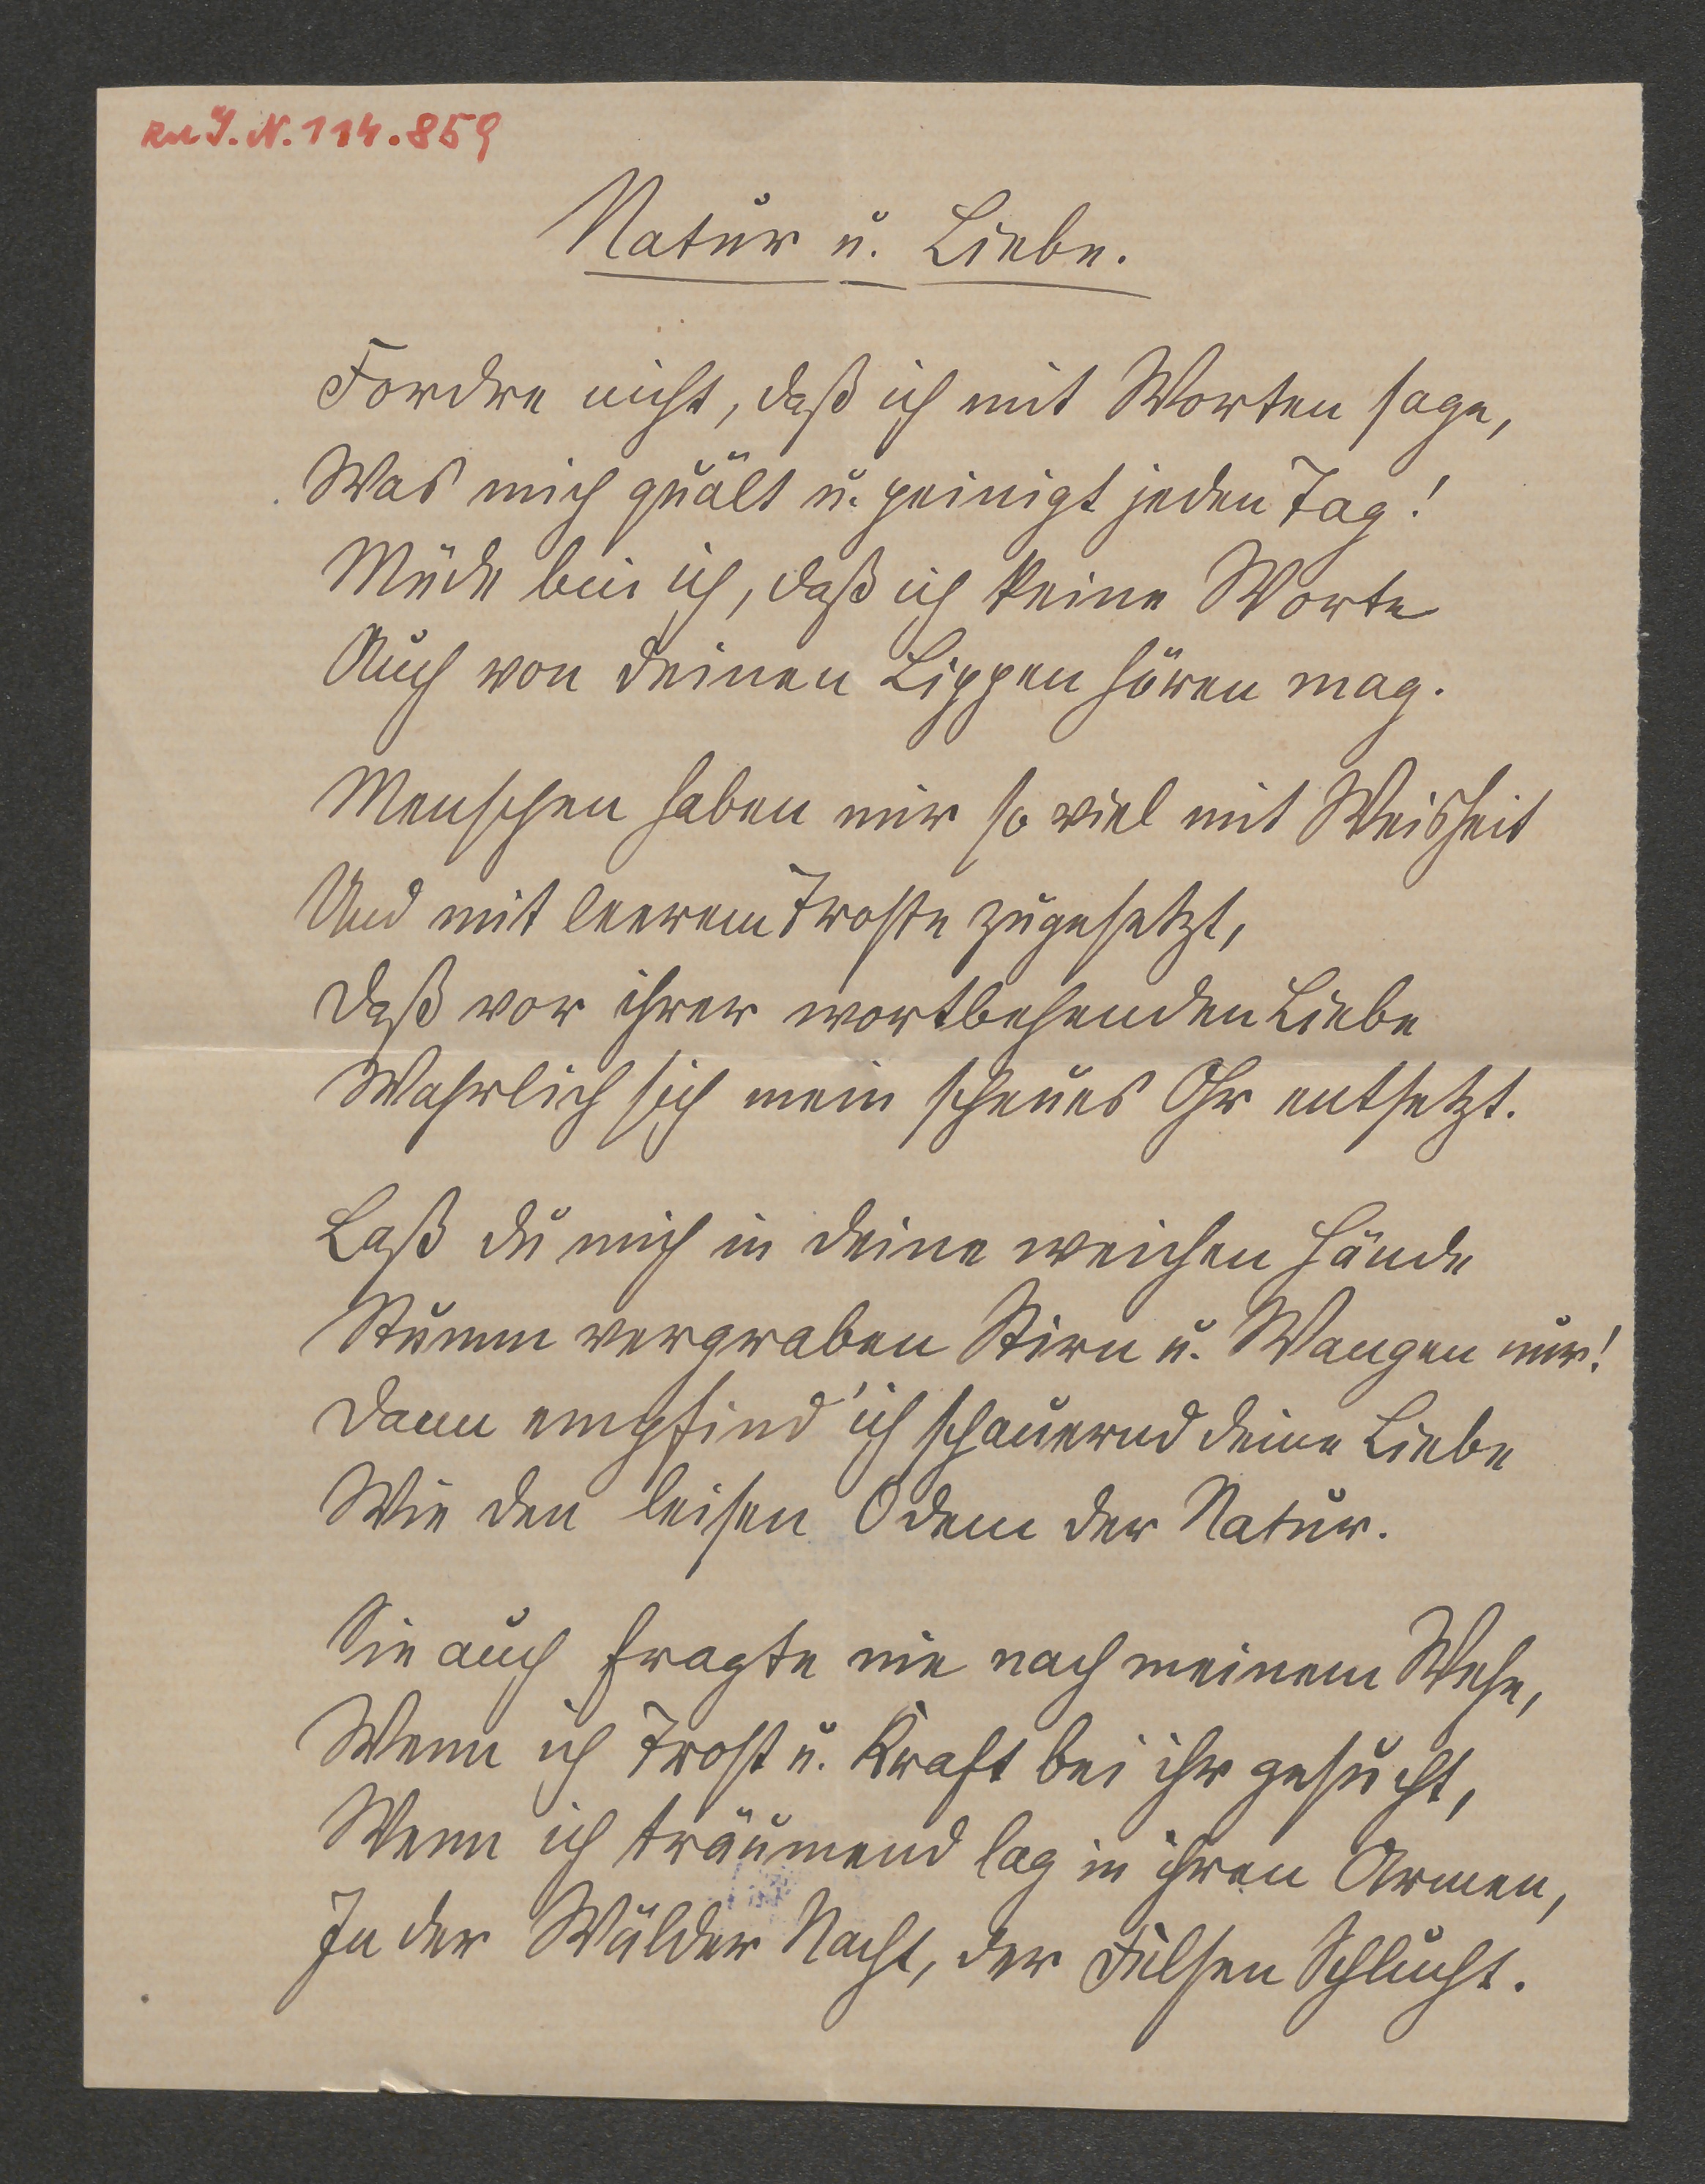 zu I.N. 114.859
Natur u. Liebe.
Fordre nicht, daß ich mit Worten sage,
Was mich quält u. peinigt jeden Tag!
Müde bin ich, daß ich keine Worte
Auch von deinen Lippen hören mag.
Menschen haben mir so viel mit Weisheit
Und mit leerem Troste zugesetzt,
Daß vor ihrer wortbehenden Liebe
Wahrlich sich mein scheues Ohr entsetzt.
Laß du mich in deine weichen Hände
Stumm vergraben Stirn u. Wangen nur!
Dann empfind' ich schauernd deine Liebe
Wie den leisen Odem der Natur.
Sie auch fragte nie nach meinem Wehe,
Wenn ich Trost u. Kraft bei ihr gesucht,
Wenn ich träumend lag in ihren Armen,
In der Wälder Nacht, der Felsen Schlucht.